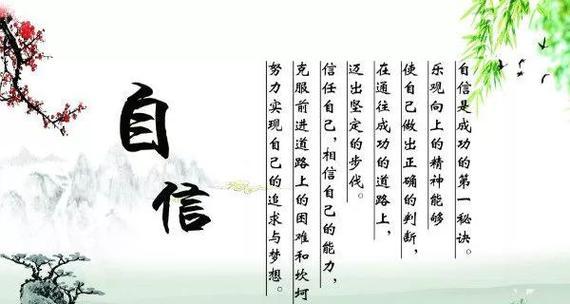 自信
自信是成功的第一秘诀。
乐观向上的精神能够
使自己做出正确的判断，
在通往成功的道路上，
迈出坚定的步伐。
信任自己，相信自己的能力，
克服前进道路上的困难和坎坷
努力实现自己的追求与梦想。